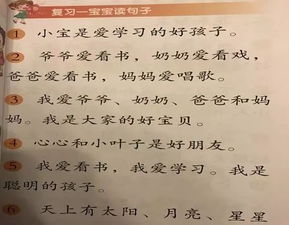 复习一宝宝读句子
1 小宝是爱学习的好孩子。
2 爷爷爱看书，奶奶爱看戏，
爸爸爱看书，妈妈爱唱歌。
3 我爱爷爷、奶奶、爸爸和妈
妈。我是大家的好宝贝。
4 心心和小叶子是好朋友。
5 我爱看书，我爱学习。我是
聪明的孩子。
6 天上有太阳、月亮、星星